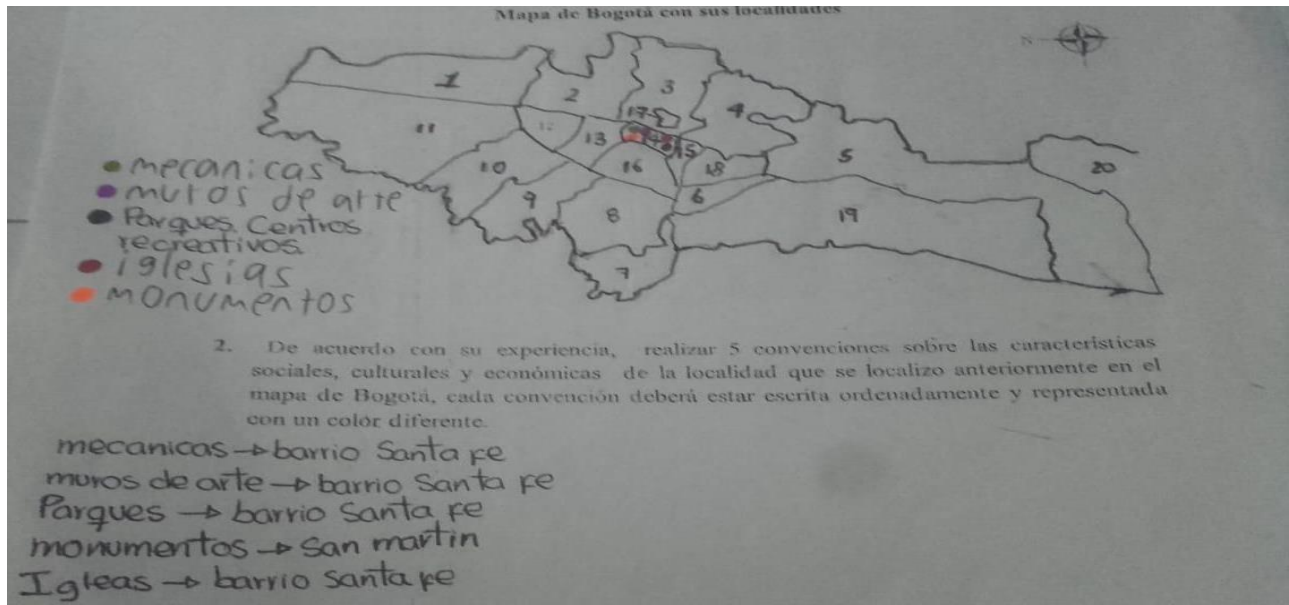 Mapa de Bogotá con sus localidades
N
1
2
3
4
5
20
17
11
12
13
14
15
10
16
18
9
8
6
19
7
mecanicas
muros de arte
Parques Centros
recreativos
iglesias
monumentos
2. De acuerdo con su experiencia, realizar 5 convenciones sobre las características
sociales, culturales y económicas de la localidad que se localizo anteriormente en el
mapa de Bogotá, cada convención deberá estar escrita ordenadamente y representada
con un color diferente.
mecanicas → barrio Santa fe
muros de arte → barrio Santa fe
Parques → barrio Santa fe
monumentos → San martin
Igleas → barrio santa fe